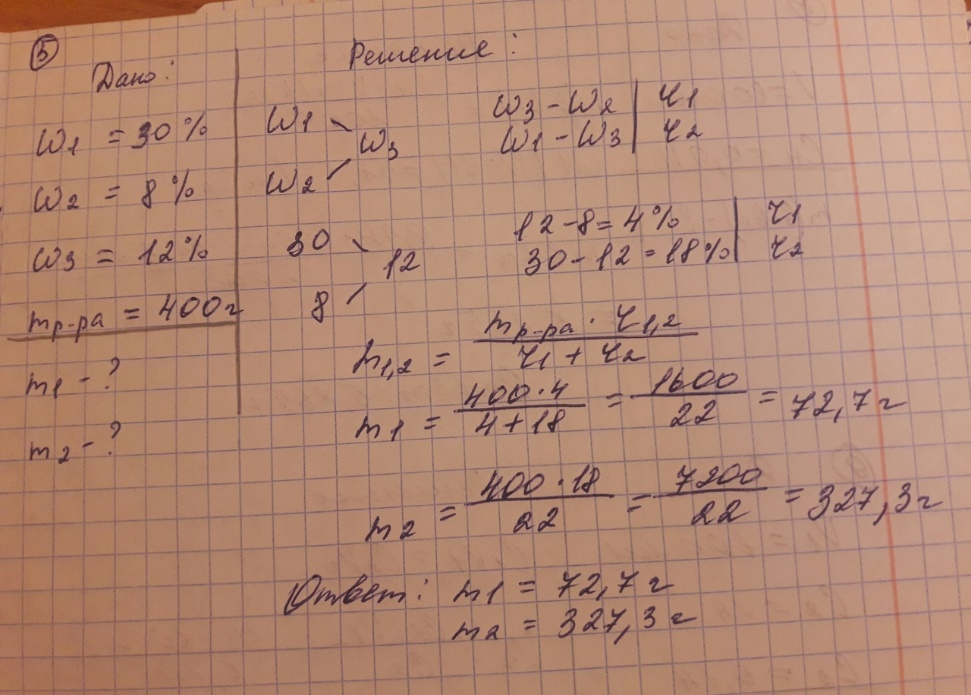 5
Дано:
ω1 = 30%
ω2 = 8%
ω3 = 12%
mр-ра = 400г
m1 - ?
m2 - ?
Решение:
ω1 ω3 - ω2 | ч1
ω3
ω2 ω1 - ω3 | ч2
30 12-8=4% | ч1
12
8 30-12=18% | ч2
m1,2 = mр-ра · ч1,2 / ч1 + ч2
m1 = 400·4 / 4+18 = 1600 / 22 = 72,7г
m2 = 400·18 / 22 = 7200 / 22 = 327,3г
Ответ: m1 = 72,7г
m2 = 327,3г